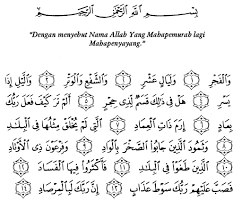 بِسْمِ اللَّهِ الرَّحْمَٰنِ الرَّحِيمِ
“Dengan menyebut Nama Allah Yang Mahapemurah lagi
Mahapenyayang.”
وَالْفَجْرِ ﴿١﴾ وَلَيَالٍ عَشْرٍ ﴿٢﴾ وَالشَّفْعِ وَالْوَتْرِ ﴿٣﴾ وَاللَّيْلِ إِذَا
يَسْرِ ﴿٤﴾ هَلْ فِي ذَٰلِكَ قَسَمٌ لِّذِي حِجْرٍ ﴿٥﴾ أَلَمْ تَرَ كَيْفَ فَعَلَ رَبُّكَ
بِعَادٍ ﴿٦﴾ إِرَمَ ذَاتِ الْعِمَادِ ﴿٧﴾ الَّتِي لَمْ يُخْلَقْ مِثْلُهَا فِي الْبِلَادِ
﴿٨﴾ وَثَمُودَ الَّذِينَ جَابُوا الصَّخْرَ بِالْوَادِ ﴿٩﴾ وَفِرْعَوْنَ ذِي الْأَوْتَادِ
﴿١٠﴾ الَّذِينَ طَغَوْا فِي الْبِلَادِ ﴿١١﴾ فَأَكْثَرُوا فِيهَا الْفَسَادَ ﴿١٢﴾
فَصَبَّ عَلَيْهِمْ رَبُّكَ سَوْطَ عَذَابٍ ﴿١٣﴾ إِنَّ رَبَّكَ لَبِالْمِرْصَادِ